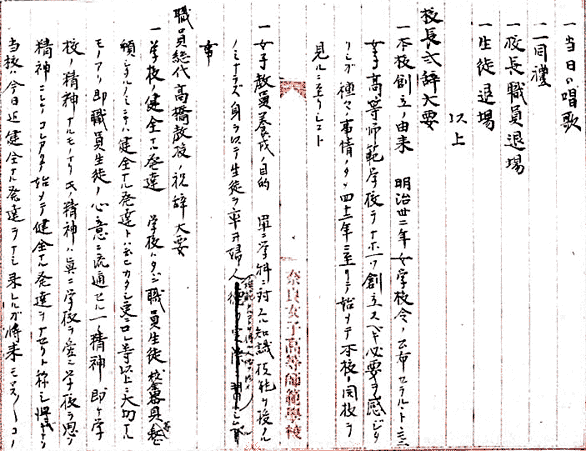 一 當日ノ唱歌
一 一同禮
一 校長職員退場
一 生徒退場
以上
校長式辞大要
一 本校創立ノ由来 明治卅二年女学校令ノ公布セラルルト共ニ
女子高等師範学校ヲナホ一ツ創立スベキ必要ヲ感ジタ
リシガ種々ノ事情ノタメ四十一年ニ至リテ始メテ本校ノ開校ヲ
見ルニ至リシコト
奈良女子高等師範學校
一 女子教員養成ノ目的 單ニ学科ニ対スル知識技能ヲ授クル
ノミナラズ身ヲ以テ生徒ヲ率ヰ婦人
事
職員総代高橋教授ノ祝辞大要
一 学校ノ健全ナル発達 学校ハタダニ職員生徒校舎器具等
頓シタルノミニテハ健全ナル発達トハ云ヒガタシ更ニコレ等以上ニ大切ナル
モノアリ即職員生徒ノ心意ニ流通セル一ノ精神即チ学
校ノ精神ナルモノナリ此ノ精神ハ真ニ学校ヲ愛シ学校ヲ思フ
精神ニシテコレアリテ始メテ健全ナル発達ヲナセリト称シ得ベク
当校ハ今日迄健全ナル発達ヲナシ来レルガ将来